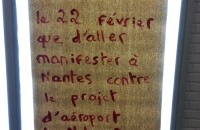 le 22 février
que d'aller
manifester à
Nantes contre
le projet
d'aéroport